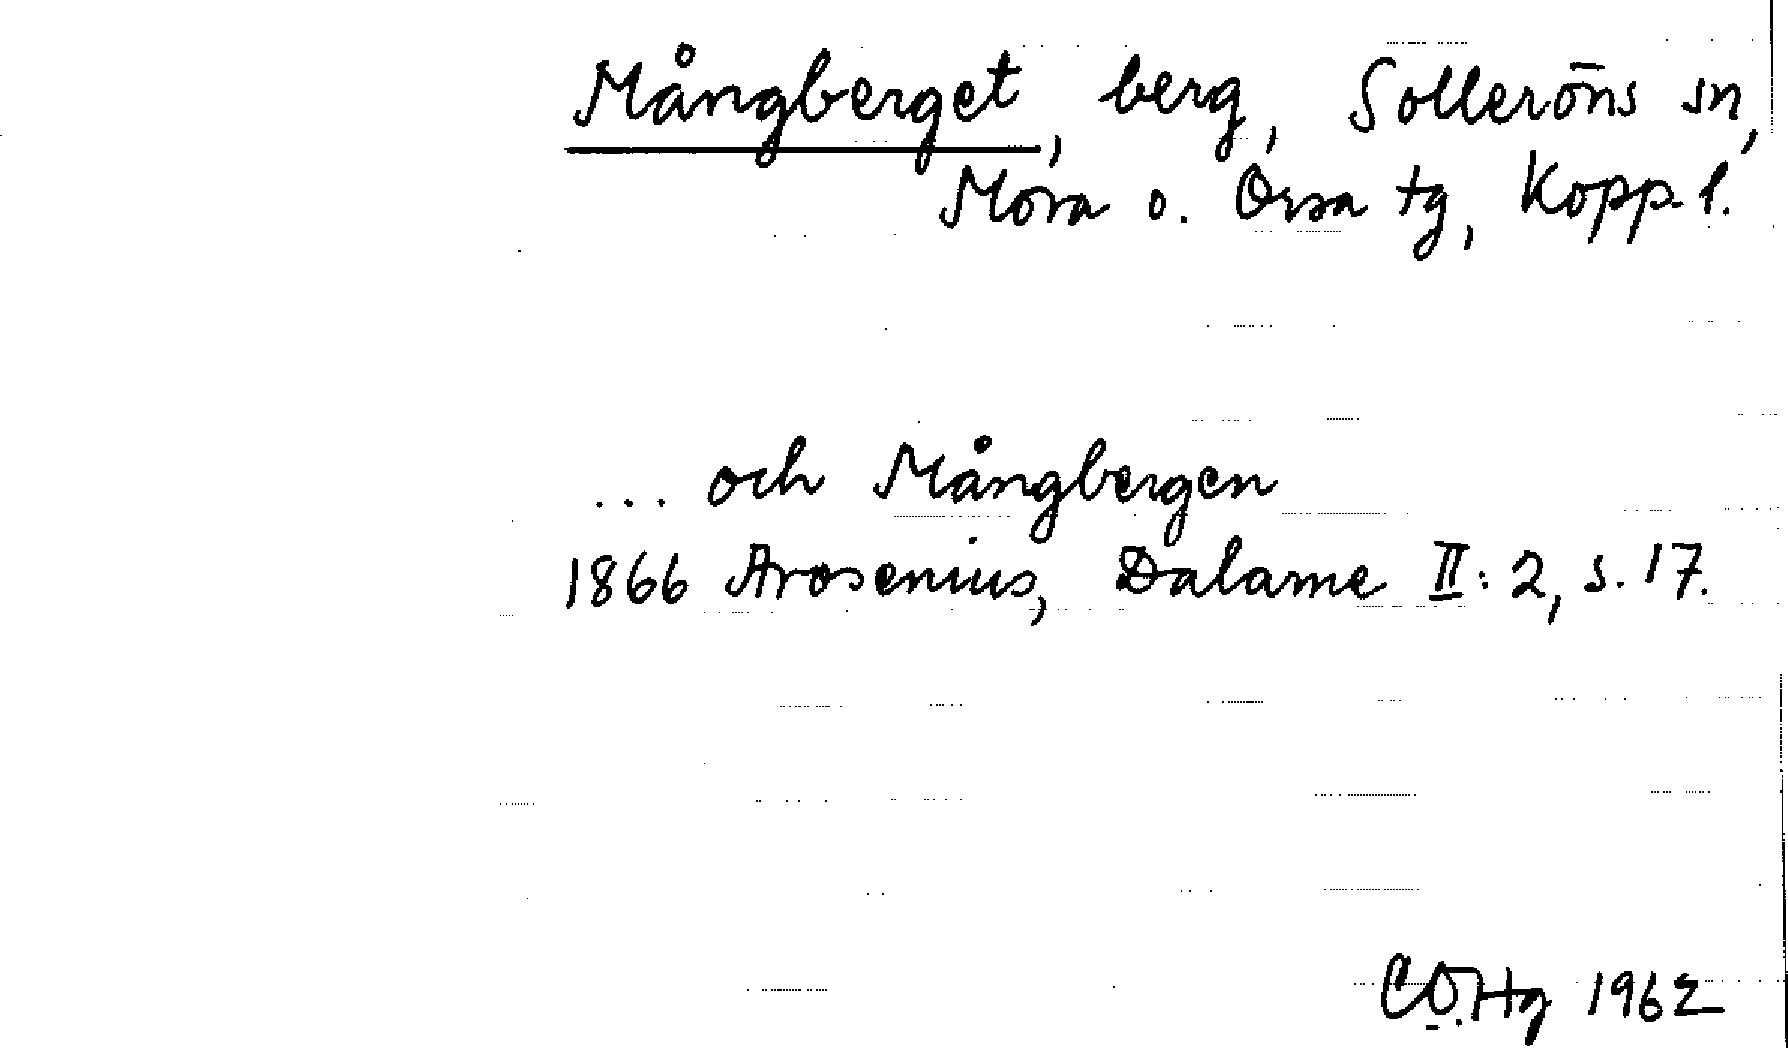 Mångberget, berg, Solleröns sn,
Mora o. Orsa tg, Kopp. l.
... och Mångbergen
1866 Arosenius, Dalarne II: 2, s. 17.
1962